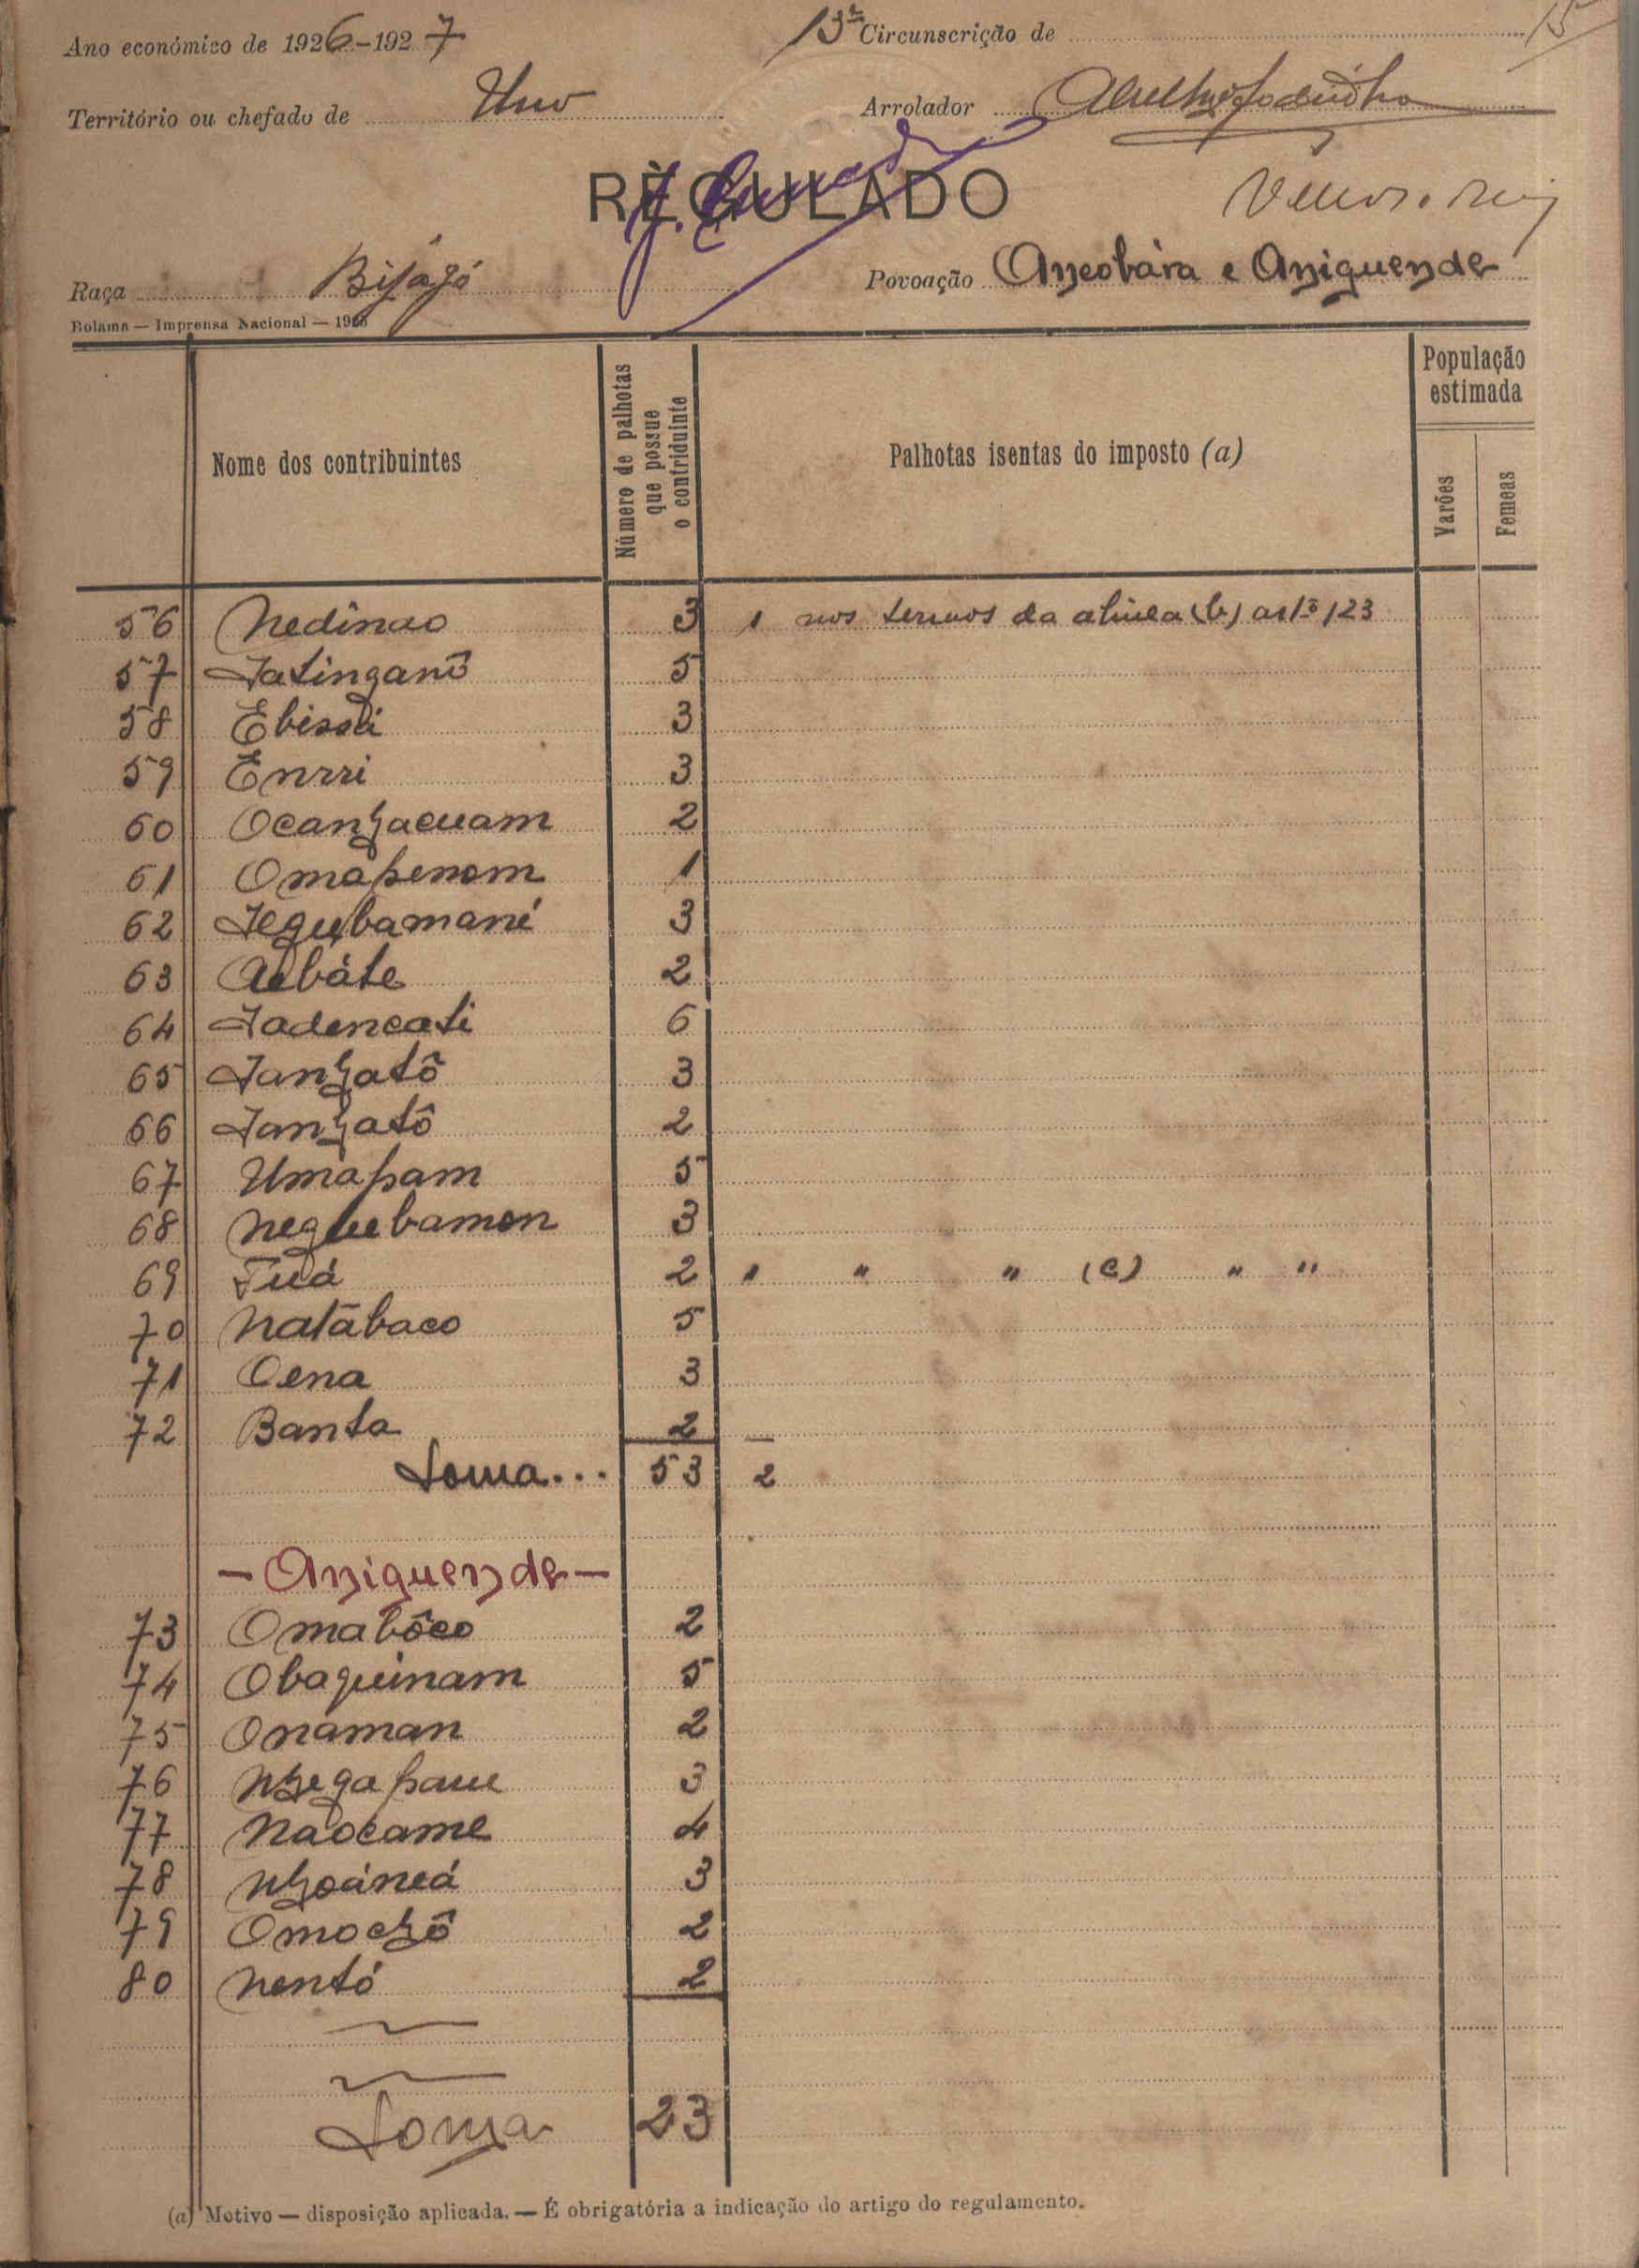 15
Ano económico de 1926-1927 13ª Circunscrição de
Território ou chefado de Uno Arrolador
RÈGULADO
Raça Bijagó Povoação Ancobára e Aniguende
Bolama — Imprensa Nacional — 1925
Nome dos contribuintes
Número de palhotas que possue o contriduinte
Palhotas isentas do imposto (a)
População estimada
Varões
Femeas
56 Nedinao 3 1 nos termos da alinea (b) artº 123
57 Jatinganô 5
58 Ebissá 3
59 Enrri 3
60 Ocanhacuam 2
61 Omapenom 1
62 Jegubamané 3
63 Acbáte 2
64 Jadencati 6
65 Janhatô 3
66 Janhatô 2
67 Umapam 5
68 Neguebamon 3
69 Tuá 2 1 " " (c) " "
70 Natábaco 5
71 Oena 3
72 Banta 2
Soma... 53 2
- Aniguende -
73 Omabôco 2
74 Obaquinam 5
75 Onaman 2
76 Nhegapaue 3
77 Naocame 4
78 Nhoáncá 3
79 Omochô 2
80 Nentó 2
Soma 23
(a) Motivo — disposição aplicada. — É obrigatória a indicação do artigo do regulamento.